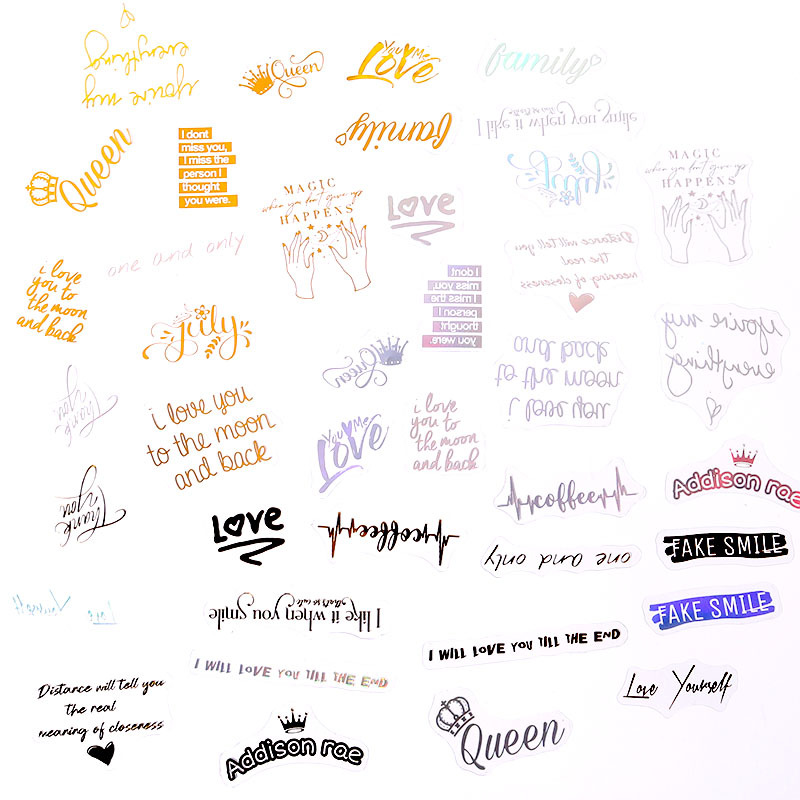 you're my
everything
Queen
You & Me
Love
family
Queen
I dont
miss you,
I miss the
person I
thought
you were.
family
I like it when you smile
that's so cute
July
MAGIC
when you don't give up
HAPPENS
Love
MAGIC
when you don't give up
HAPPENS
one and only
Distance will tell you
The real
meaning of closeness
i love
you to
the moon
and back
I dont
miss you,
I miss the
person I
thought
you were.
July
you're my
everything
Queen
i love you
to the moon
and back
Thank
you.
i love you
to the moon
and back
You & Me
Love
i love
you to
the moon
and back
coffee
Addison rae
Thank
you.
Love
coffee
one and only
FAKE SMILE
Love Yourself
I like it when you smile
that's so cute
FAKE SMILE
I WILL LOVE YOU TILL THE END
I WILL LOVE YOU TILL THE END
Distance will tell you
the real
meaning of closeness
Love Yourself
Addison rae
Queen